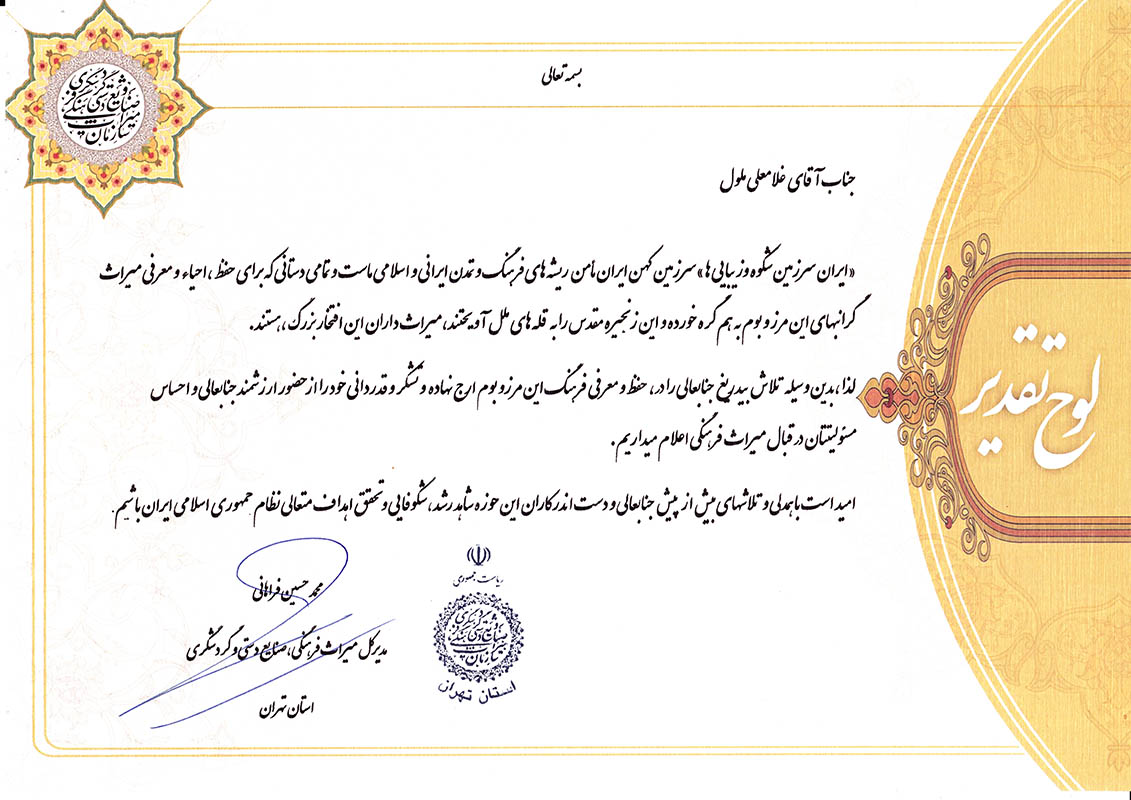 بسمه تعالی
جناب آقای غلامعلی ملول
«ایران سرزمین شکوه و زیبایی ها» سرزمین کهن ایران مأمن ریشه های فرهنگ و تمدن ایرانی و اسلامی ماست و تمامی دستانی که برای حفظ ، احیاء و معرفی میراث
گرانبهای این مرز و بوم به هم گره خورده و این زنجیره مقدس را به قله های ملل آویختند، میراث داران این افتخار بزرگ ، هستند.
لذا ، بدین وسیله تلاش بیدریغ جنابعالی را در ، حفظ و معرفی فرهنگ این مرز و بوم ارج نهاده و تشکر و قدردانی خود را از حضور ارزشمند جنابعالی و احساس
مسئولیتتان در قبال میراث فرهنگی اعلام میداریم .
امید است با همدلی و تلاشهای بیش از پیش جنابعالی و دست اندرکاران این حوزه شاهد رشد، شکوفایی و تحقق اهداف متعالی نظام جمهوری اسلامی ایران باشیم.
لوح تقدیر
محمد حسین فراهانی
مدیرکل میراث فرهنگی، صنایع دستی و گردشگری
استان تهران
ریاست جمهوری
سازمان میراث فرهنگی صنایع دستی و گردشگری
استان تهران
سازمان میراث فرهنگی صنایع دستی و گردشگری